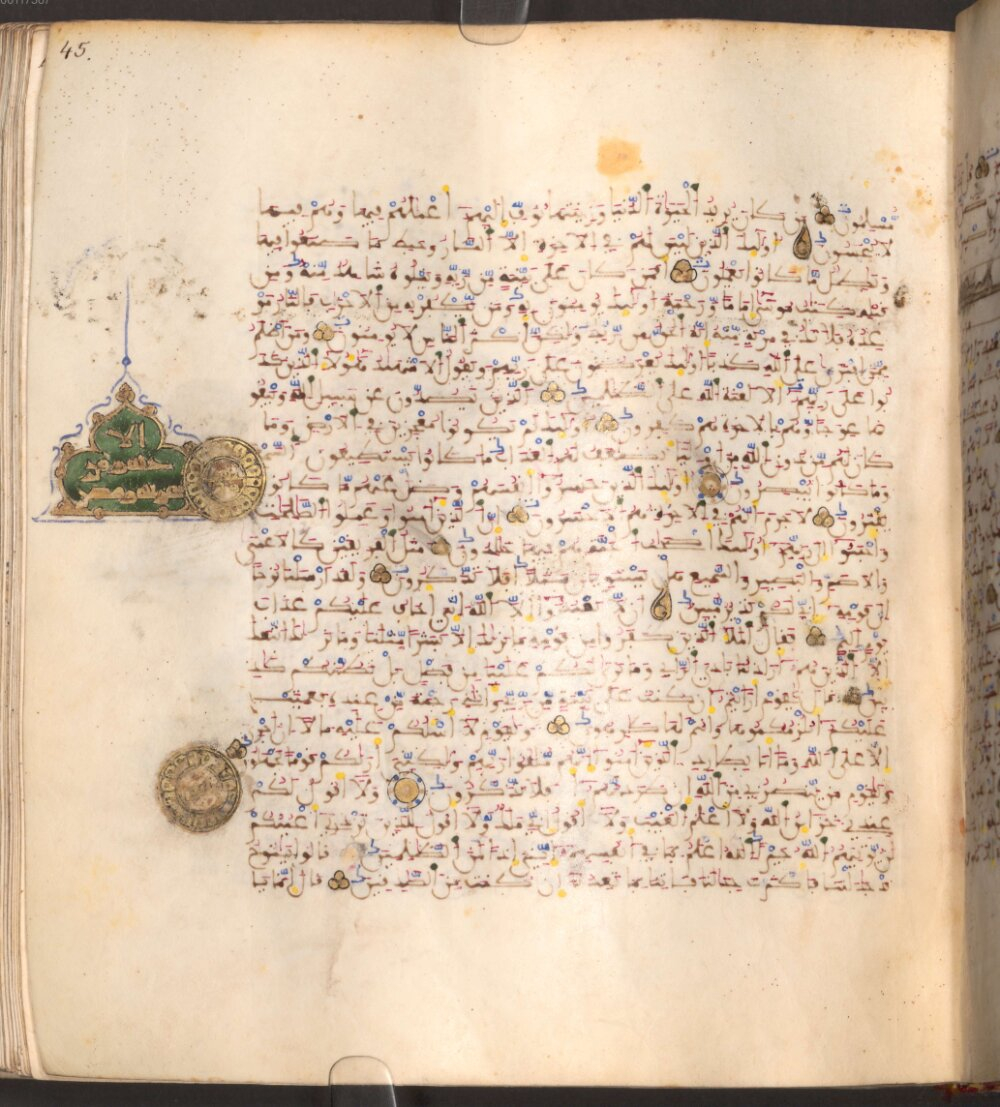 45.
مسلمون من كان يريد الحيوة الدنيا وزينتها نوف اليهم اعملهم فيها وهم فيها
لا يبخسون اولئك الذين ليس لهم في الاخرة الا النار وحبط ما صنعوا فيها
وبطل ما كانوا يعملون افمن كان على بينة من ربه ويتلوه شاهد منه ومن
قبله كتب موسى اماما ورحمة اولئك يومنون به ومن يكفر به من الاحزاب فالنار مو
عده فلا تك في مرية منه انه الحق من ربك ولكن اكثر الناس لا يومنون ومن اظلم
ممن افترى على الله كذبا اولئك يعرضون على ربهم ويقول الاشهد هولاء الذين كذ
بوا على ربهم الا لعنة الله على الظلمين الذين يصدون عن سبيل الله ويبغو
نها عوجا وهم بالاخرة هم كفرون اولئك لم يكونوا معجزين في الارض وما
كان لهم من دون الله من اولياء يضعف لهم العذاب ما كانوا يستطيعون السمع
وما كانوا يبصرون اولئك الذين خسروا انفسهم وضل عنهم ما كانوا
يفترون لا جرم انهم في الاخرة هم الاخسرون ان الذين امنوا وعملوا الصلحت
واخبتوا الى ربهم اولئك اصحب الجنة هم فيها خلدون مثل الفريقين كالاعمى
والاصم والبصير والسميع هل يستوين مثلا افلا تذكرون ولقد ارسلنا نوحا
الى قومه اني لكم نذير مبين ان لا تعبدوا الا الله اني اخاف عليكم عذاب
يوم اليم فقال الملا الذين كفروا من قومه ما نريك الا بشرا مثلنا وما نريك اتبعك
الا الذين هم اراذلنا بادي الراي وما نرى لكم علينا من فضل بل نظنكم كذ
بين قال يقوم ارايتم ان كنت على بينة من ربي واتيني رحمة من عنده فعميت
عليكم انلزمكموها وانتم لها كرهون ويقوم لا اسلكم عليه مالا ان اجري
الا على الله وما انا بطارد الذين امنوا انهم ملقوا ربهم ولكني اريكم قوما تجهلو
ن ويقوم من ينصرني من الله ان طردتهم افلا تذكرون ولا اقول لكم
عندي خزائن الله ولا اعلم الغيب ولا اقول اني ملك ولا اقول للذين تزدري اعينكم
لن يوتيهم الله خيرا الله اعلم بما في انفسهم اني اذا لمن الظلمين قالوا ينوح
قد جدلتنا فاكثرت جدلنا فاتنا بما تعدنا ان كنت من الصدقين قال انما يا